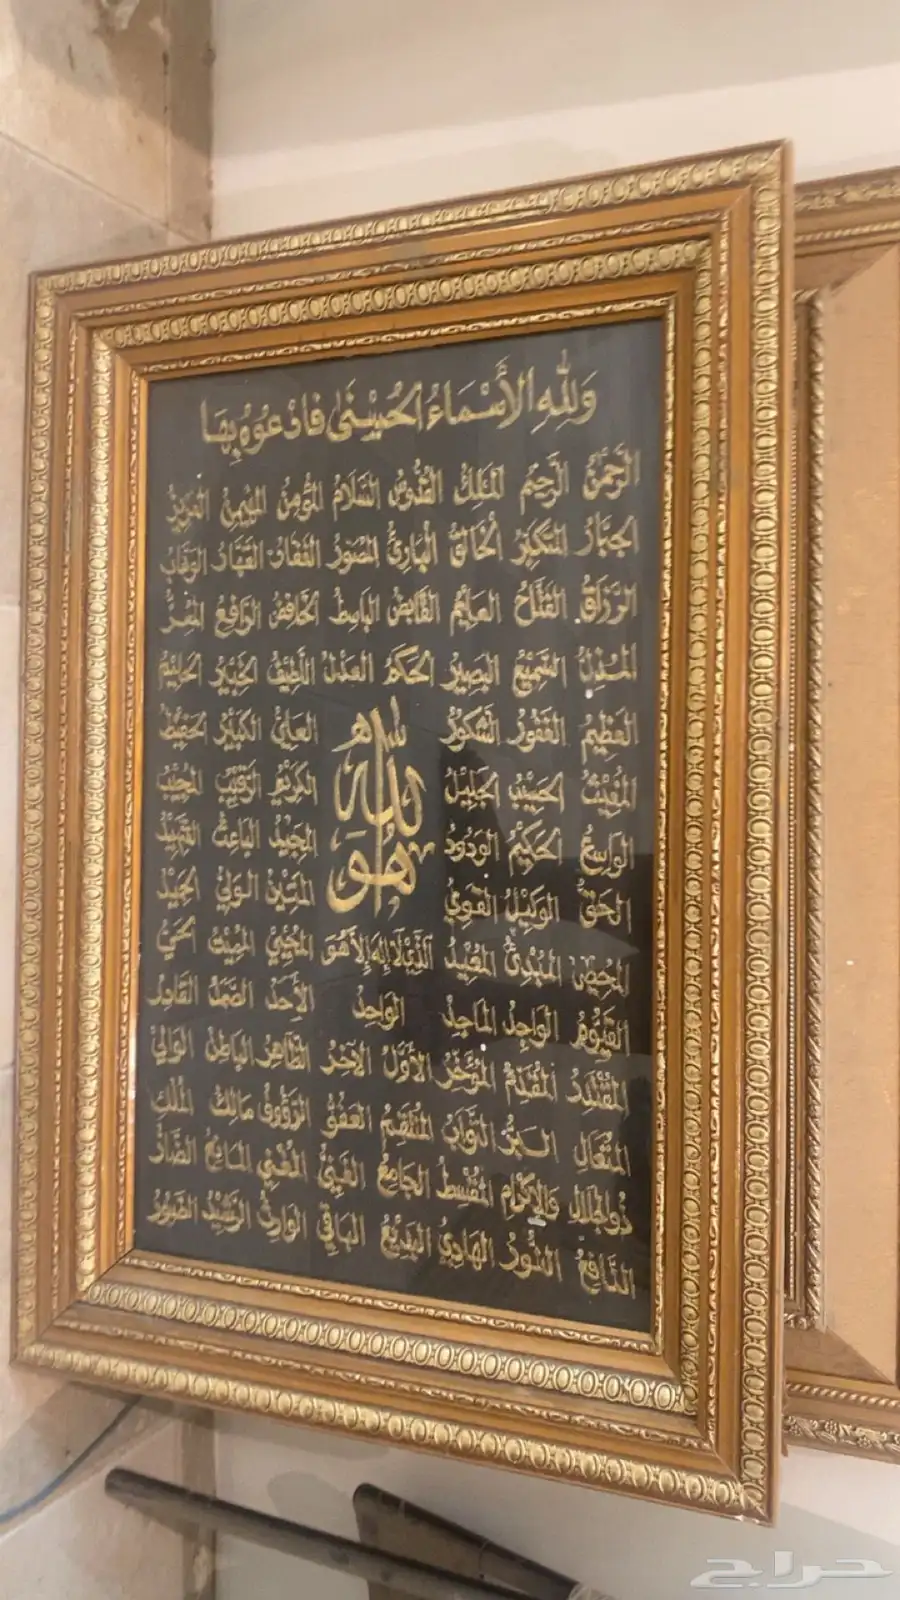 وَلِلَّهِ الأَسْمَاءُ الحُسْنَى فَادْعُوهُ بِهَا
الرحمن الرحيم الملك القدوس السلام المؤمن المهيمن العزيز
الجبار المتكبر الخالق البارئ المصور الغفار القهار الوهاب
الرزاق الفتاح العليم القابض الباسط الخافض الرافع المعز
المذل السميع البصير الحكم العدل اللطيف الخبير الحليم
العظيم الغفور الشكور العلي الكبير الحفيظ
المقيت الحسيب الجليل الكريم الرقيب المجيب
الواسع الحكيم الودود المجيد الباعث الشهيد
هو الله
الحق الوكيل القوي المتين الولي الحميد
المحصي المبدئ المعيد الذي لا إله إلا هو المحيي المميت الحي
القيوم الواجد الماجد الواحد الأحد الصمد القادر
المقتدر المقدم المؤخر الأول الآخر الظاهر الباطن الوالي
المتعال البر التواب المنتقم العفو الرؤوف مالك الملك
ذو الجلال والإكرام المقسط الجامع الغني المغني المانع الضار
النافع النور الهادي البديع الباقي الوارث الرشيد الصبور
حراج